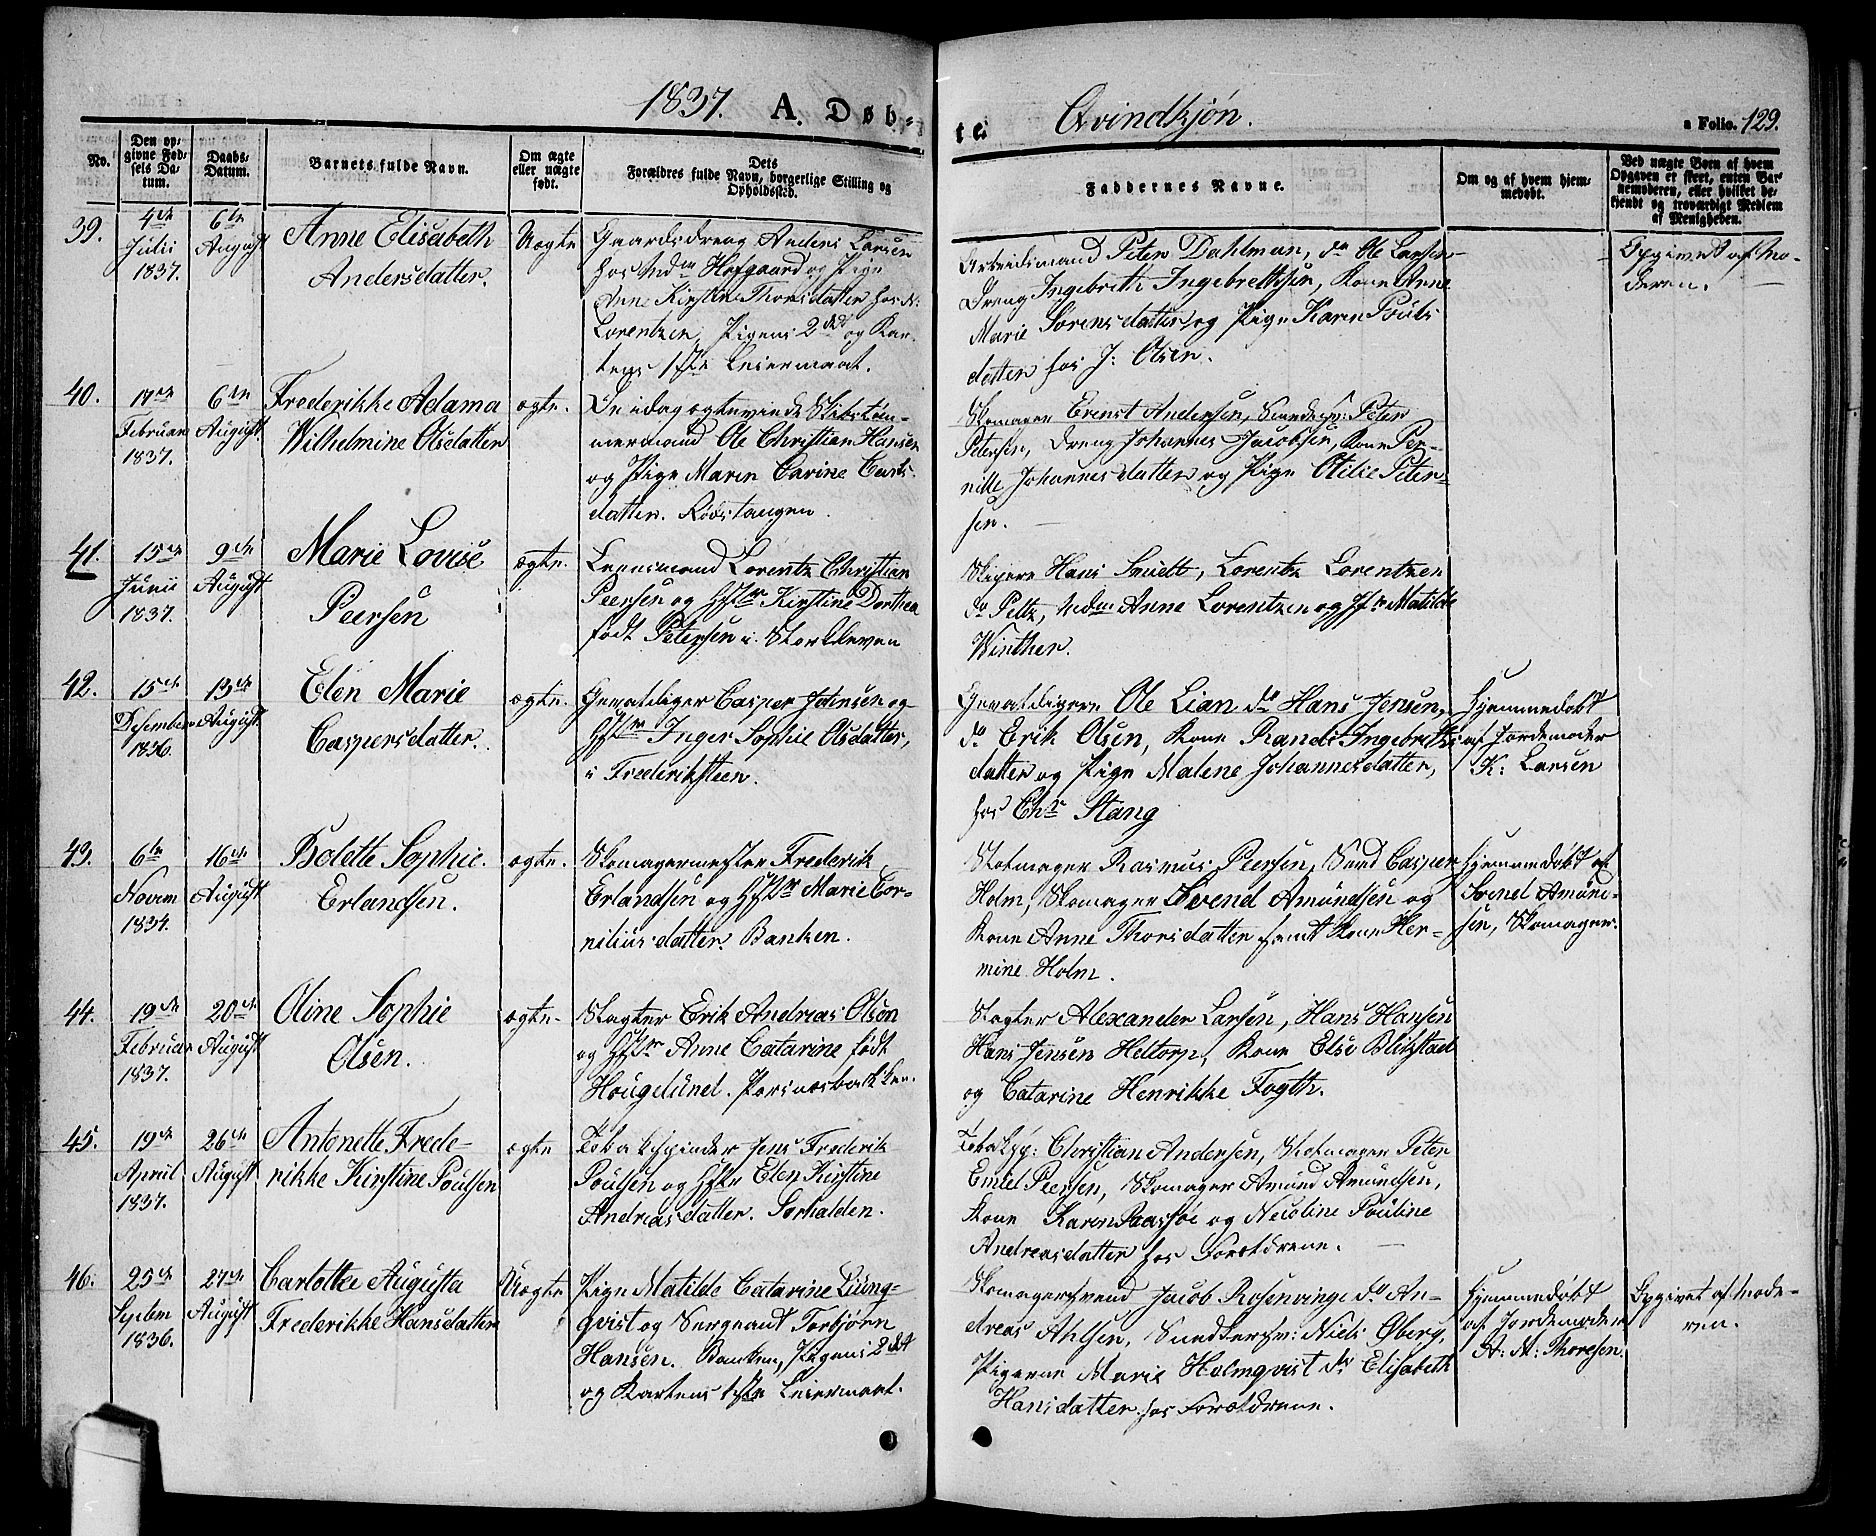 1837. A. Døb-
te. Qvindkjøn. a Folio. 129.
No.
Den op-
givne Fød-
sels Da-
tum.
Daabs-
Datum.
Barnets fulde Navn.
Om ægte
eller uægte
født.
Dets
Forældres fulde Navn, borgerlige Stilling og
Opholdssted.
Faddernes Navne.
Om og af hvem hjem-
medøbt.
Ved uægte Born af hvem
Opgaven er skeet, enten Bar-
nemoderen, eller hvilket be-
kjendt og troværdigt Medlem
af Menigheden.
39.
4de
Julii
1837.
6te
August
Anne Elisabeth
Andersdatter.
Uægte
Gaardsdreng Anders Larsen
hos Md. Hofgaard og Pige
Anne Kirstine Thorsdatter hos
Lorentzen, Pigens 2det og Kar-
lens 1ste Leiermaal.
Arbeidsmand Peter Dahlman, do Ole Larsen
Dreng Ingebreth Ingebrethsen, Kone Anne
Marie Sørensdatter og Pige Karen Pouls
datter hos J: Olsen.
Opgivet af Mo-
deren.
40.
17de
Februar
1837.
6te
August
Frederikke Adama
Wilhelmine Olsdatter
ægte.
De idag ægteviede Skibstøm-
mermand Ole Christian Hansen
og Pige Maren Carine Carls-
datter. Rødstangen
Skomager Ernst Andersen, Smedesv: Peter
Petersen, Dreng Johannes Jacobsen, Kone Per-
nille Johannesdatter og Pige Otilie Peter-
sen.
41.
15de
Junii
1837.
9de
August
Marie Lovise
Peersen
ægte.
Lensmand Lorentz Christian
Peersen og Hstr Kirstine Dorthea
født Petersen i Storkleven
Skipper Hans Smidt, Lorentz Lorentzen
do Peltz, Md. Anne Lorentzen og Jfr Matilde
Winther.
42.
15de
Desember
1836.
13de
August
Elen Marie
Caspersdatter.
ægte.
Gevaldiger Casper Jensen og
Hstr Inger Sophie Olsdatter,
i Frederiksteen.
Gevaldigere Ole Lian do Hans Jensen,
do Erik Olsen, Kone Randi Ingebreths
datter og Pige Malene Johannesdatter,
hos Chr Stang
Hjemmedøbt
af Jordemoder
K: Larsen
43.
6te
Novem
1834.
16de
August
Bolette Sophie.
Erlandsen.
ægte.
Skomagermester Frederik
Erlandsen og Hstr Marie Cor-
niliusdatter. Banken.
Stolmager Rasmus Peersen, Smed Casper
Holm, Skomager Svend Amundsen og
Kone Anne Thorsdatter samt Kone Her-
mine Holm.
Hjemmedøbt af
Svend Amund-
sen, Skomager.
44.
19de
Februar
1837.
20de
August
Oline Sophie
Olsen.
ægte.
Slagter Erik Andreas Olson
og Hstr Anne Catarine født
Hougslund.
Slagter Alexander Larsen, Hans Hansen
Hans Jensen Heltorp, Kone Else Blikstad
og Catarine Henrikke Fogth.
45.
19de
April
1837.
26de
August
Antonette Frede-
rikke Kirstine Poulsen
ægte
Tobakspinder Jens Frederik
Poulsen og Hstr Elen Kirstine
Andreasdatter. Sørhalden.
Tobaksp: Christian Andersen, Stolmager Peter
Emiel Peersen, Skomager Amund Amundsen,
Kone Karen Aasssøe og Nicoline Pouline
Andreasdatter hos Forældrene.
46.
25de
Septem
1836.
27de
August
Carlotte Augusta
Frederikke Hansdatter
Uægte
Pige Matilde Catarine Liung-
qvist og Sergeant Torbjørn
Hansen. Banken, Pigens 2det
og Karlens 1ste Leiermaal.
Skomagersvend Jacob Rosenvinge do An-
dreas Ahlsen, Snedkersv: Niels Øberg,
Pigerne Marie Holmqvist do Elisabeth
Hansdatter hos Forældrene.
Hjemmedøbt
af Jordemoder
A: M: Thoresen.
Opgivet af Mode-
ren.